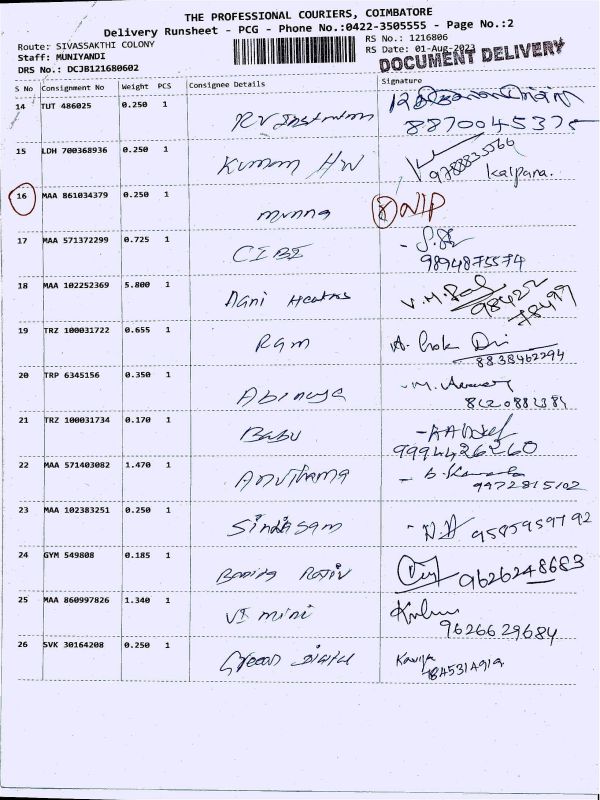 THE PROFESSIONAL COURIERS, COIMBATORE
Delivery Runsheet - PCG - Phone No.:0422-3505555 - Page No.:2
Route: SIVASSAKTHI COLONY
RS No.: 1216806
Staff: MUNIYANDI
RS Date: 01-Aug-2023
DOCUMENT DELIVERY
DRS No.: DCJB121680602
S No Consignment No Weight PCS Consignee Details Signature
14 TUT 486025 0.250 1
8870045375
15 LDH 700368936 0.250 1 Kumm HW 9788835566 Kalpana.
16 MAA 861034379 0.250 1 Munna NIP
17 MAA 571372299 0.725 1 CIBI
9894875574
18 MAA 102252369 5.800 1 Mani 98422
78499
19 TRZ 100031722 0.655 1 Ram
8838462294
20 TRP 6345156 0.350 1 Abinaya
21 TRZ 100031734 0.170 1 Babu
9994426260
22 MAA 571403082 1.470 1
9972815102
23 MAA 102383251 0.250 1 9585959792
24 GYM 549808 0.185 1 9626248683
25 MAA 860997826 1.340 1 VI mini
9626629684
26 SVK 30164208 0.250 1 Kaviya